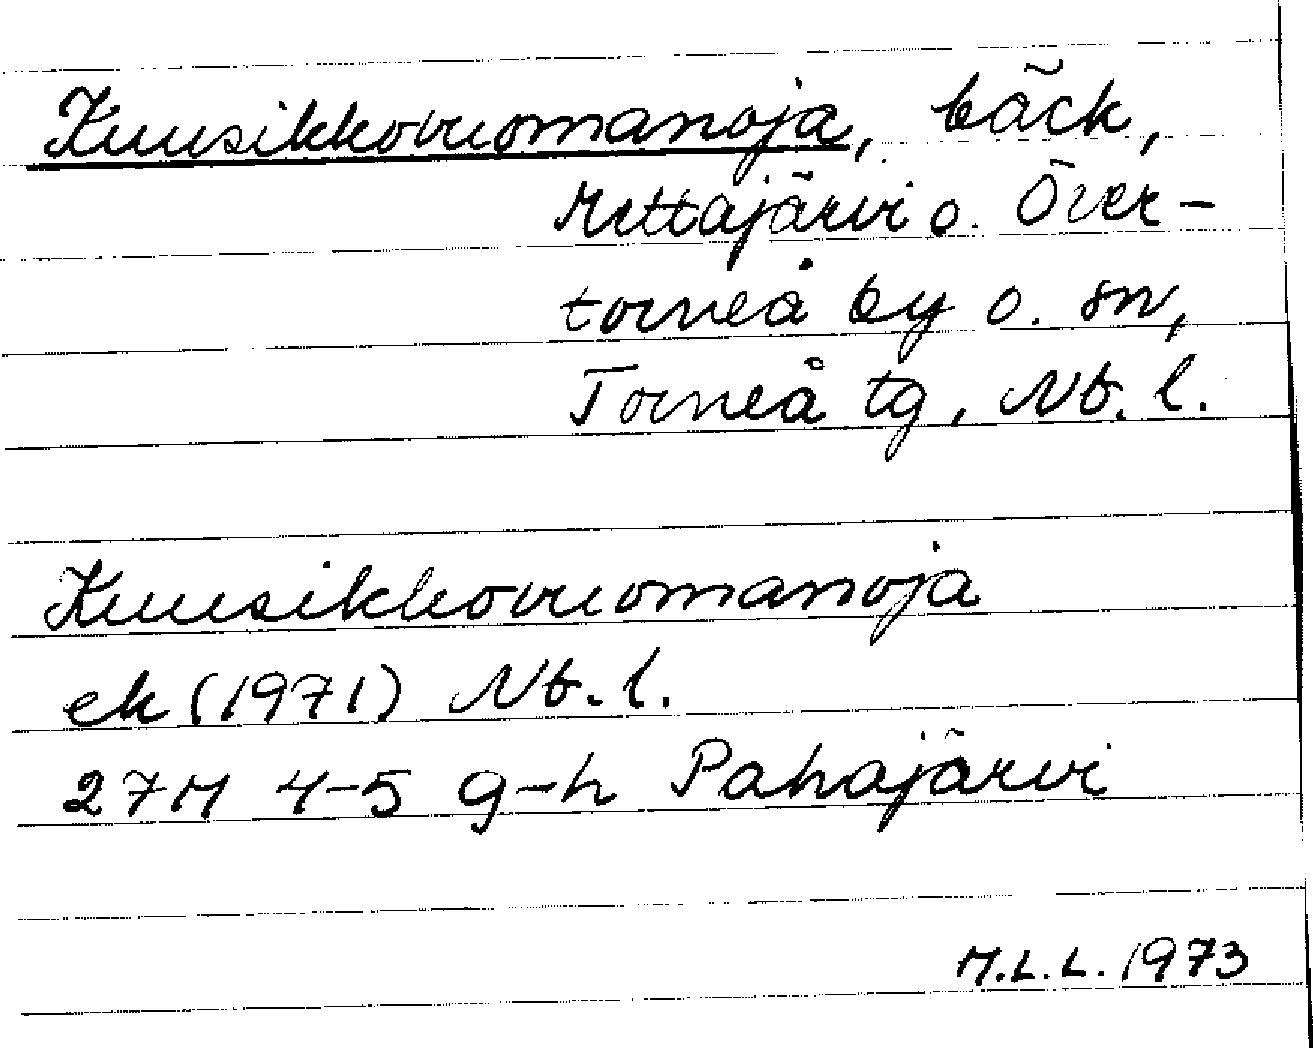 Kuusikkovuomanoja, bäck,
Mettajärvi o. Över-
torneå by o. sn,
Torneå tg, Nb. l.
Kuusikkovuomanoja
ek (1971) Nb. l.
27M 4-5 g-h Pahajärvi
M.L.L. 1973